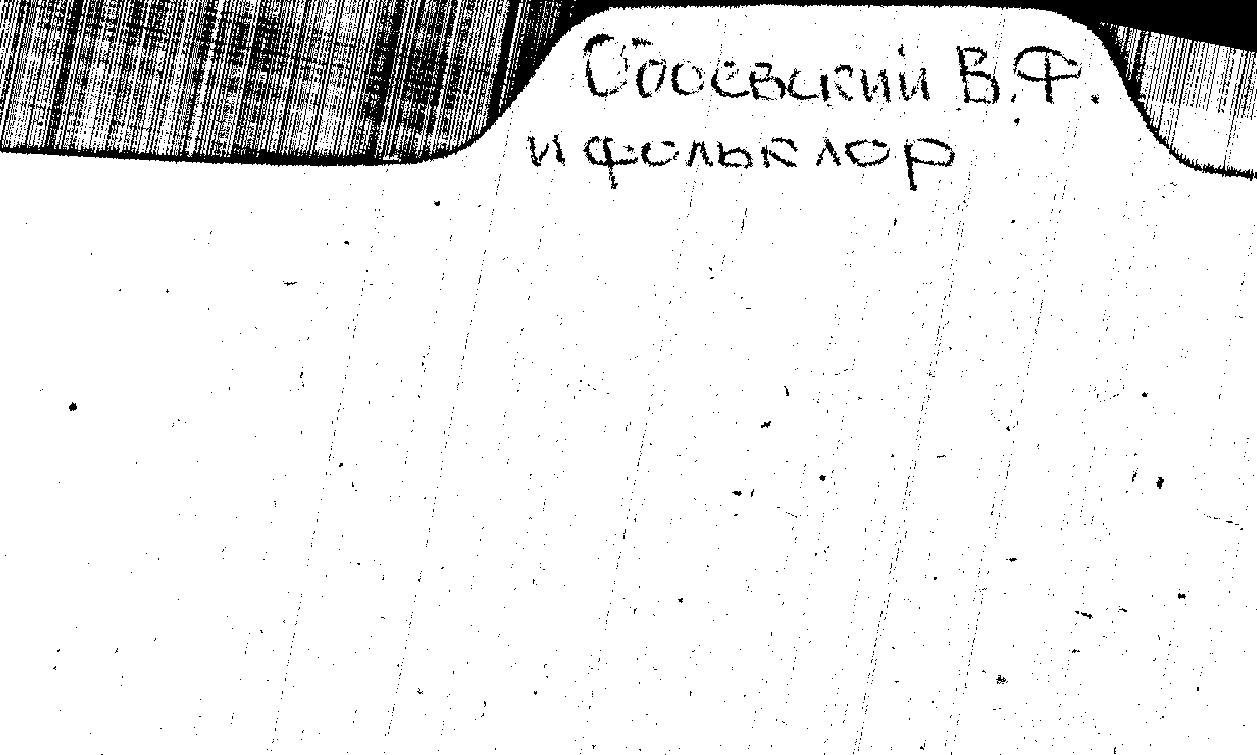 Одоевский В.Ф.
и фольклор